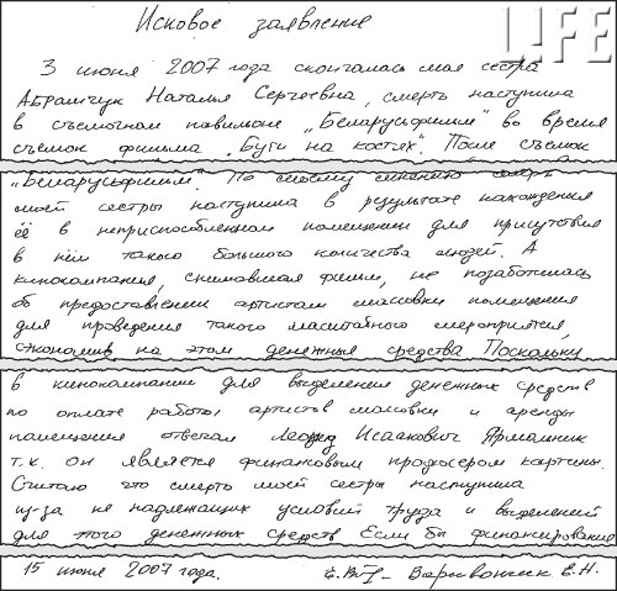 LIFE
Исковое заявление
3 июня 2007 года скончалась моя сестра
Абрамчук Наталья Сергеевна, смерть наступила
в съемочном павильоне „Беларусьфильм" во время
съемок фильма „Буги на костях". После съемок
„Беларусьфильм". По моему мнению смерть
моей сестры наступила в результате нахождения
её в неприспособленном помещении для присутствия
в нём такого большого количества людей. А
кинокомпания, снимавшая фильм, не позаботилась
об предоставлении артистам массовки помещения
для проведения такого масштабного мероприятия,
сэкономив на этом денежные средства Поскольку
в кинокомпании для выделения денежных средств
по оплате работы артистов массовки и аренды
помещения отвечал Леонид Исаакович Ярмольник
т.к. он является финансовым продюсером картины.
Считаю что смерть моей сестры наступила
из-за не надлежащих условий труда и выделений
для этого денежных средств Если бы финансирование
15 июня 2007 года. Варивончик Е.Н.